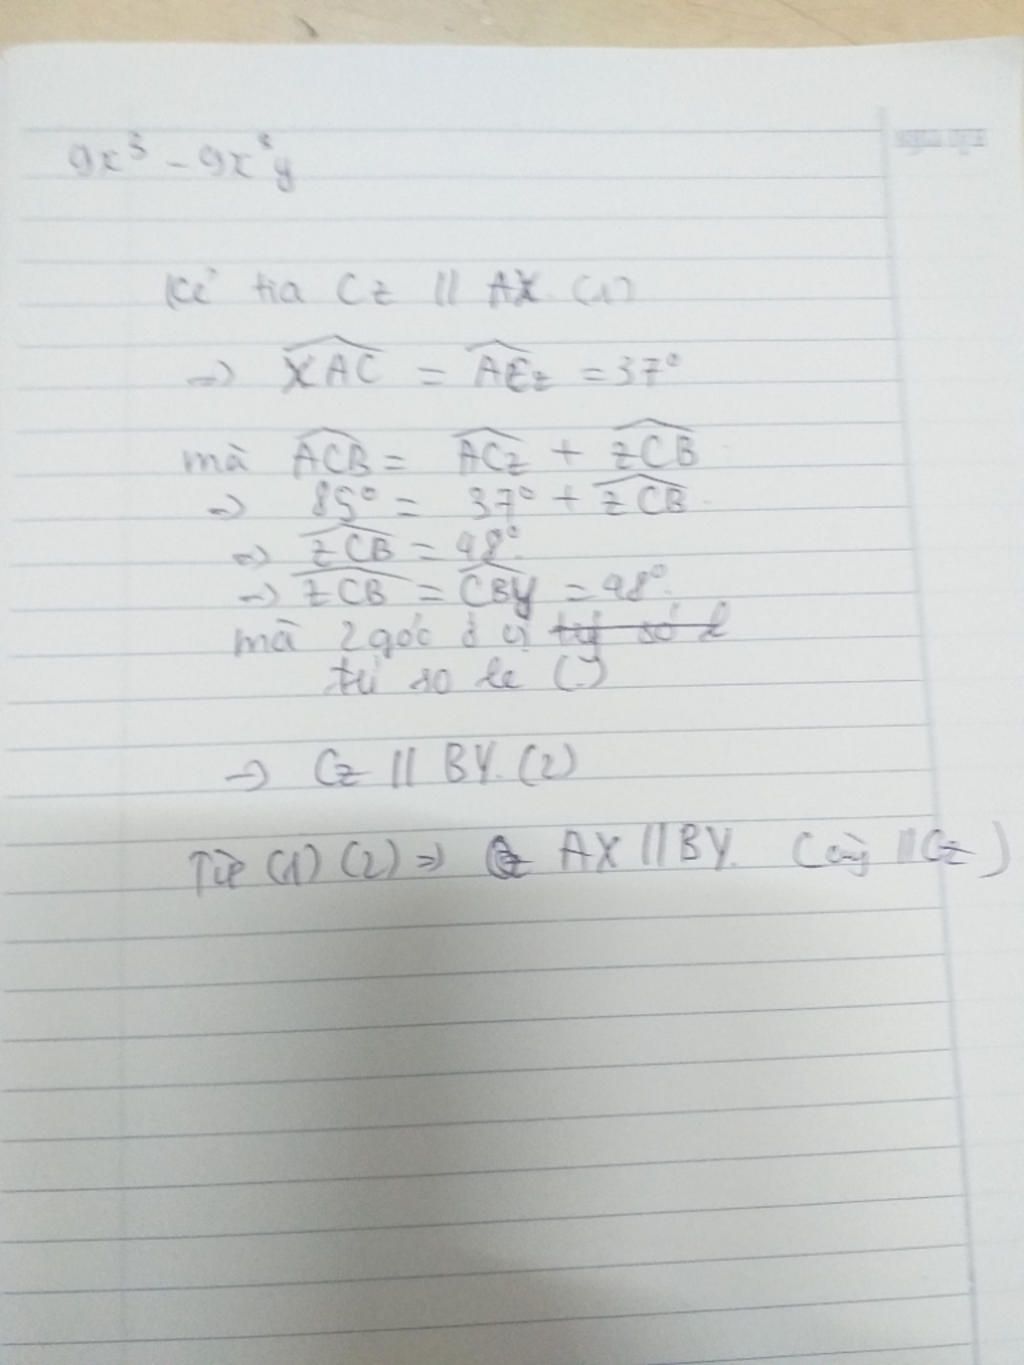 9x³ - 9x²y
Kẻ tia Cz // AX. (1)
=> XAC = ACz = 37°
mà ACB = ACz + zCB
=> 85° = 37° + zCB.
=> zCB = 48°.
=> zCB = CBY = 48°.
mà 2 góc ở vị
so le (.)
=> Cz // BY. (2)
Từ (1) (2) => AX // BY. (cùng // Cz)